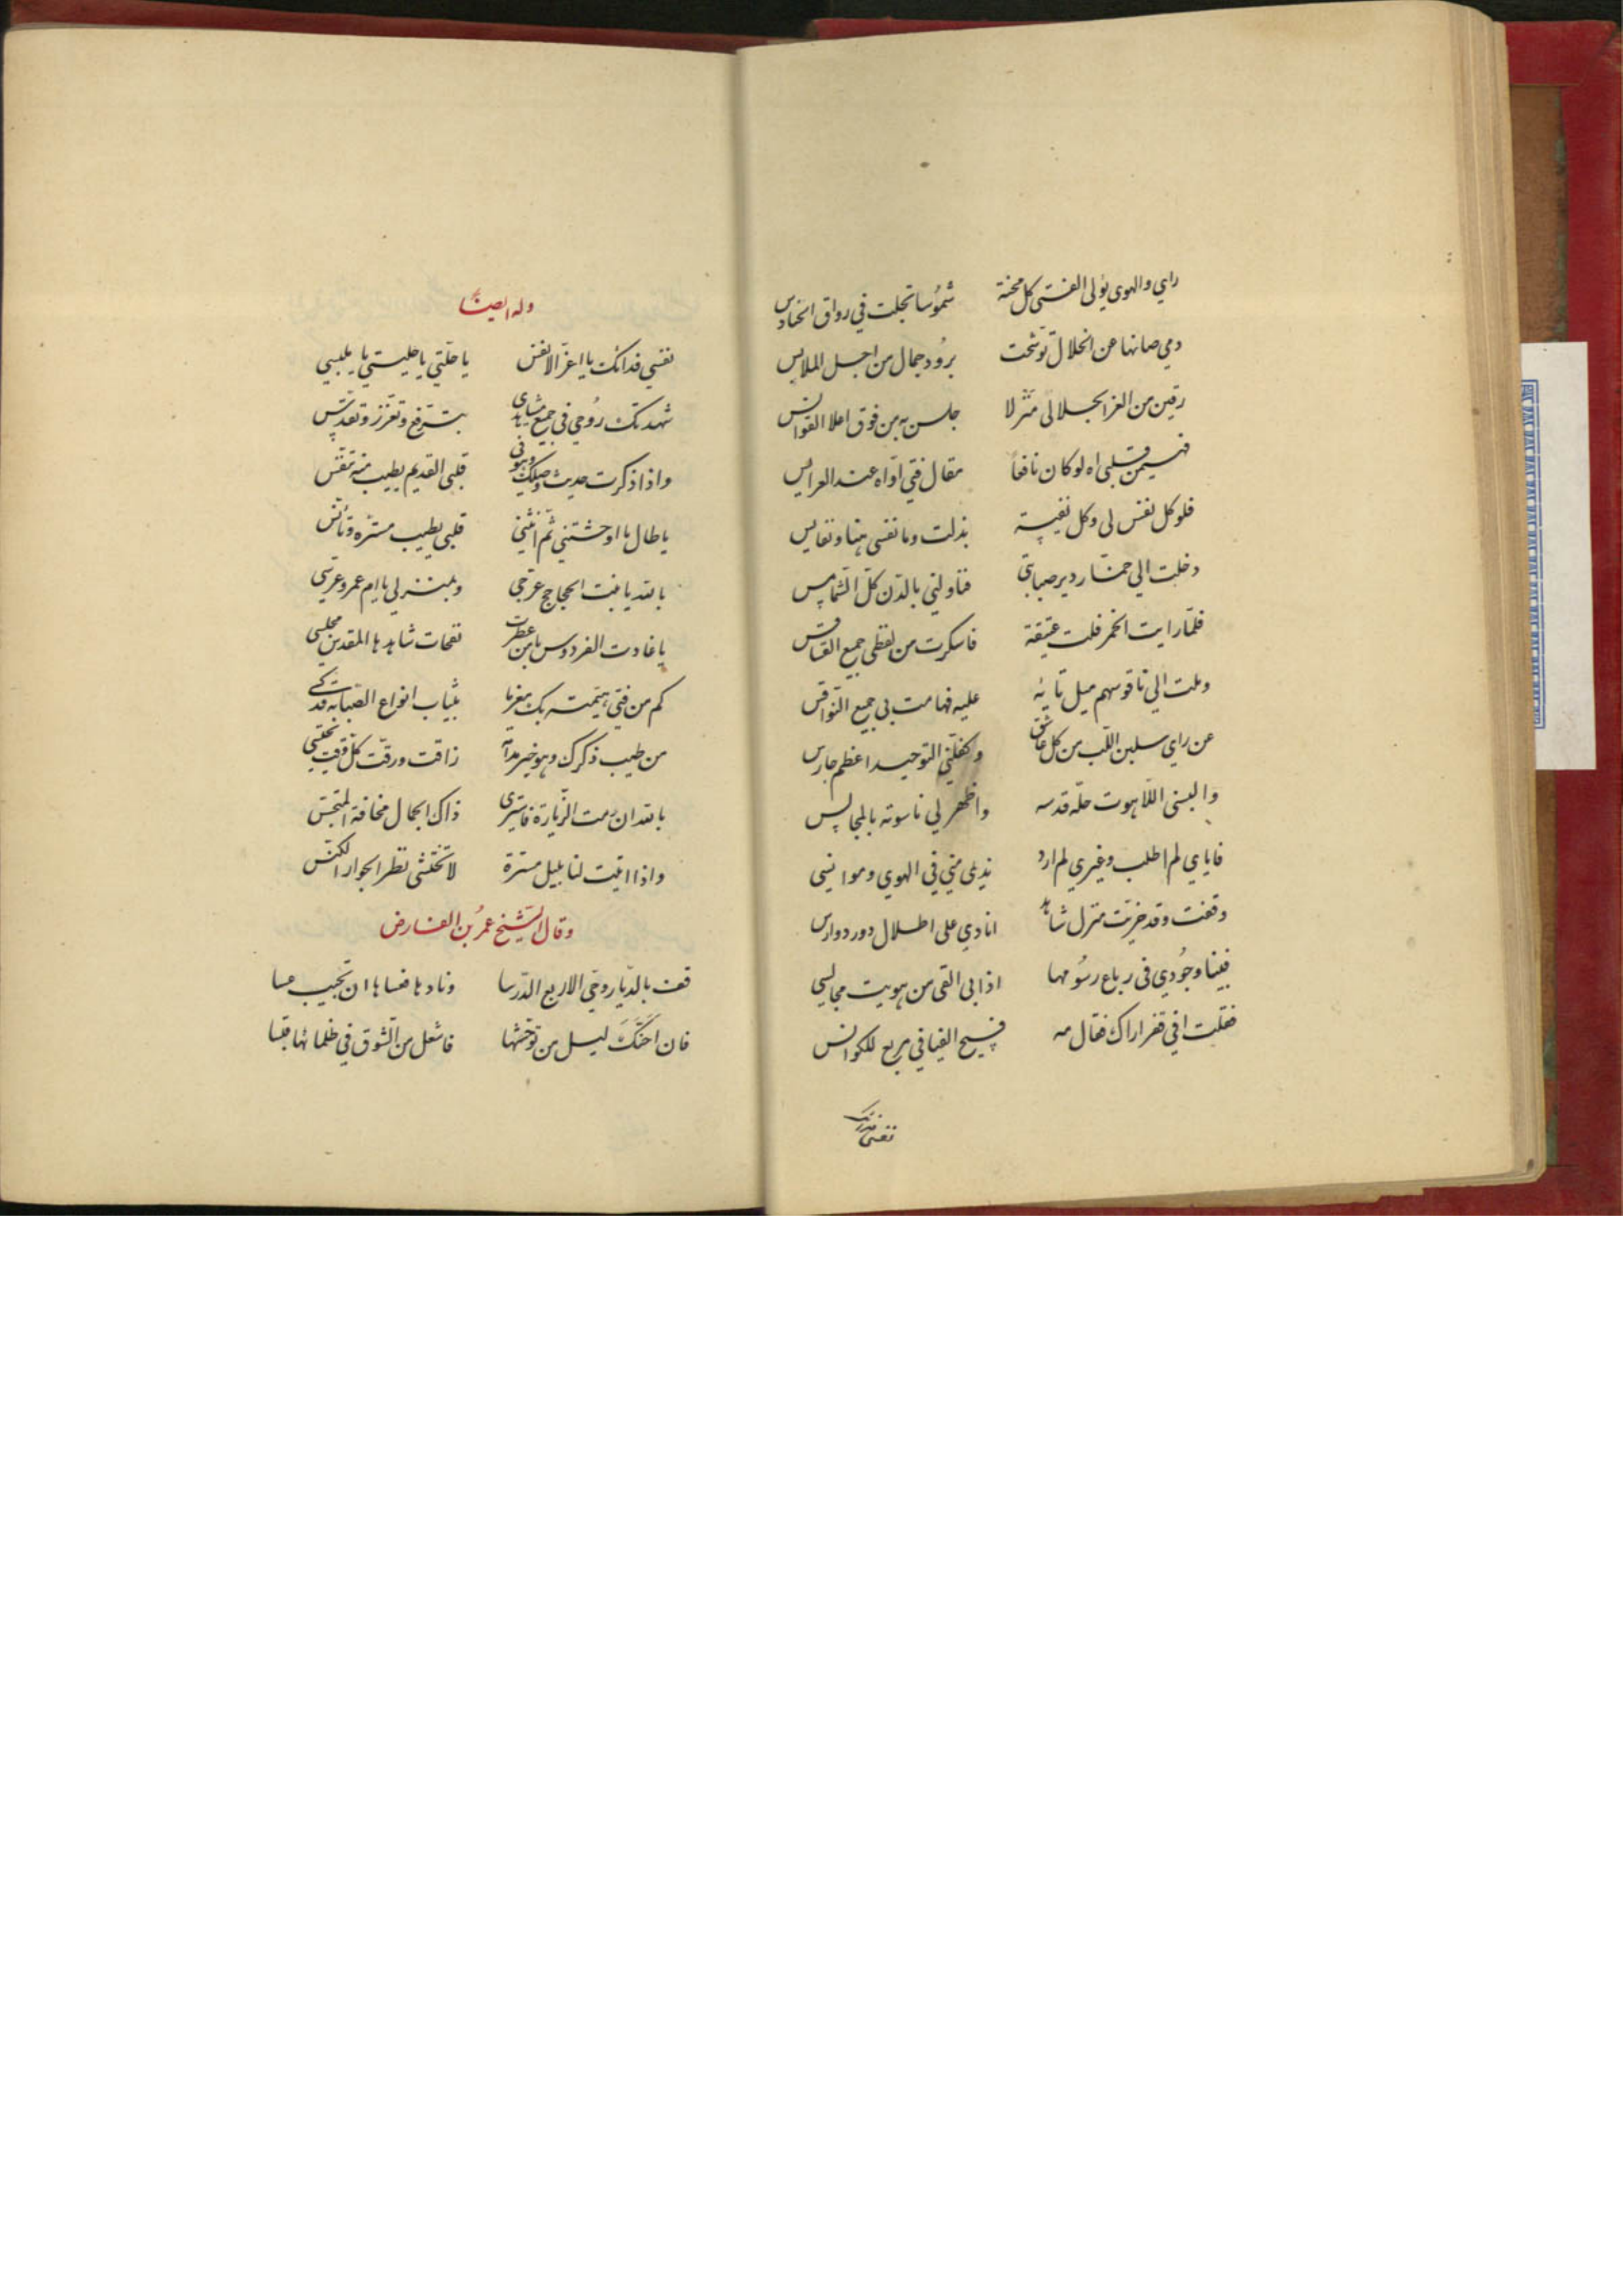 راي والهوى يؤلى الفتى كل محنة شموسا تجلت في رواق الحنادس
دمي صانها عن انحلال توشحت برود جمال من اجل الملابس
رقين من العز الجلالى منزلا جلسن به من فوق اعلا القوانس
فهيمن قلبى اه لو كان نافعا مقال فتى اواه عند العرايس
فلو كل نفس لى وكل نفيسة بذلت وما نفسى هنا ونفايس
دخلت الي خمار دير صبابتى فناولنى بالدن كل الشمامس
فلما رايت الخمر قلت عتيقة فاسكرت من لفظى جميع القساقس
وملت الي ناقوسهم ميل تايه عليه فهامت بى جميع النواقس
عن راي سلبن اللب من كل عاشق وكفلنى التوحيد اعظم حارس
والبسنى اللاهوت حلة قدسه واظهر لي ناسوته بالمجالس
فاياي لم اطلب وغيري لم ارد نديمى منى في الهوي وموانسى
وقفت وقد خربت منزل شاهد انادي على اطلال دور دوارس
فبينا وجودي فى رباع رسومها اذا بى القى من هويت مجالسى
فقلت افي قفر اراك فقال مه فسيح الفيافي مربع للكوانس
نفسى فدائك
وله ايضا
نفسى فدائك يا اعز الانفس يا خلتي يا جليستي يا ملبسي
شهدتك روحي فى جميع مشاهدى بترفع وتعزز وتقدس
واذا ذكرت حديث وصلك وهو فى قلبى القديم يطيب منه تنفس
يا طال ما اوحشتني ثم انثنى قلبى يطيب مسره وتأنس
بالله يا بنت الحجاجج عرجى وبمنزلى يا ام عمرو عرسى
يا غادت الفردوس يا من عطرت نفحات شاهدها المقدس مجلسى
كم من فتى هيمته بك مغرما بثياب انواع الصبابة قد كسى
من طيب ذكرك وهو خير مدامة راقت ورقت كل وقت نحتسى
بالله ان رمت الزيارة فاسترى ذاك الجمال مخافة المتجسس
واذا اتيت لنا بليل مسترة لا تختشى نظر الجوار الكنس
وقال الشيخ عمر بن الفارض
قف بالديار وحى الاربع الدرسا ونادها فعساها ان تجيب عسا
فان اجنك ليل من توحشها فاشعل من الشوق في ظلمائها قبسا